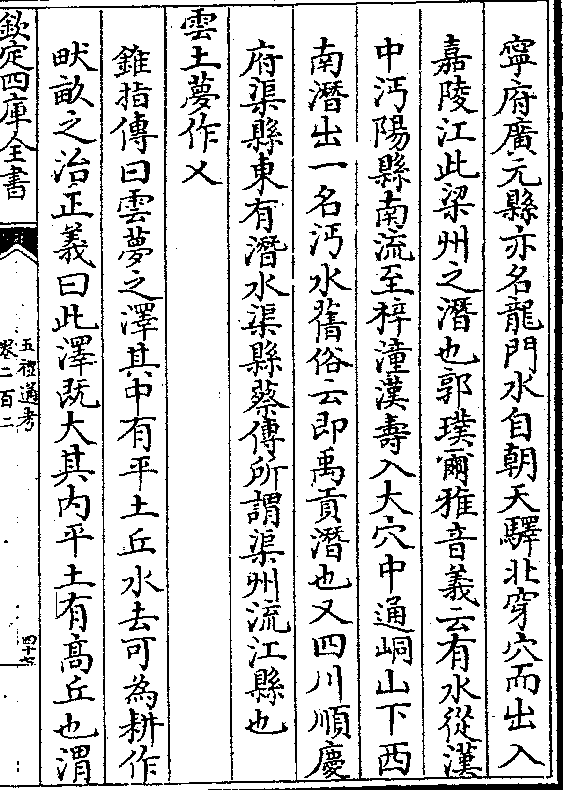 寧府廣元縣亦名龍門水自朝天驛北穿穴而出入
嘉陵江此梁州之潛也郭璞爾雅音義云有水從漢
中沔陽縣南流至梓潼漢壽入大穴中通峒山下西
南潛出一名沔水舊俗云即禹貢潛也又四川順慶
府渠縣東有潛水渠縣蔡傳所謂渠州流江縣也
雲土夢作乂
錐指傳曰雲夢之澤其中有平土丘水去可為耕作
畎畝之治正義曰此澤既大其内平土有高丘也渭
欽定四庫全書
五禮通考
卷二百二
四十六